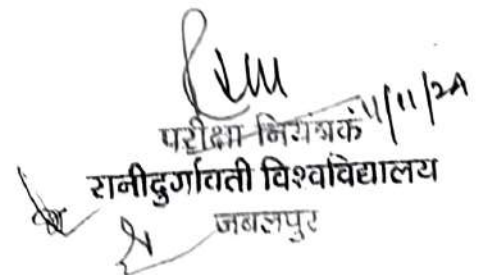 परीक्षा नियंत्रक
11/11/24
रानीदुर्गावती विश्वविद्यालय
जबलपुर